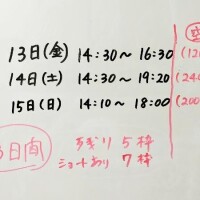 空
13日(金) 14:30～16:30 (12
14日(土) 14:30～19:20 (24
15日(日) 14:10～18:00 (200
日間
残り 5枠
ショートあり 7枠